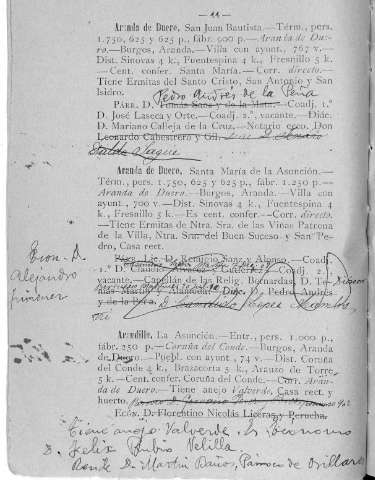 — 44 —
Aranda de Duero, San Juan Bautista.—Térm., pers.
1.750, 625 y 625 p., fábr. 900 p.—Aranda de Due-
ro.—Burgos, Aranda.—Villa con ayunt., 767 v.—
Dist. Sinovas 4 k., Fuentespina 4 k., Fresnillo 5 k.
—Cent. confer. Santa María.—Corr. directo.—
Tiene Ermitas del Santo Cristo, San Antonio y San
Isidro.
Pedro Andrés de la Peña
Párr. D. Tomás Sanz y de la Mata.—Coadj. 1.º
D. José Laseca y Orte.—Coadj. 2.º, vacante.—Diác.
D. Mariano Calleja de la Cruz.—Notario ecco. Don
Leonardo Cabestrero y Gil.
Aranda de Duero, Santa María de la Asunción.—
Térm., pers. 1.750, 625 y 625 p., fábr. 1.250 p.—
Aranda de Duero.—Burgos, Aranda.—Villa con
ayunt., 700 v.—Dist. Sinovas 4 k., Fuentespina 4
k., Fresnillo 5 k.—Es cent. confer.—Corr. directo.
—Tiene Ermitas de Ntra. Sra. de las Viñas Patrona
de la Villa, Ntra. Sra. del Buen Suceso y San Pe-
dro, Casa rect.
Párr. Lic. D. Remigio Sanz y Alonso.—Coadj.
1.º D. Claudio
vacante.—Capellán de las Relig. Bernardas, D. To-
D. Pedro Andrés
y de la Peña.
Econ. D.
Alejandro
Jiménez
Arandilla, La Asunción.—Entr., pers. 1.000 p.,
fábr. 250 p.—Coruña del Conde.—Burgos, Aranda
de Duero.—Puebl. con ayunt., 74 v.—Dist. Coruña
del Conde 4 k., Brazacorta 5 k., Arauzo de Torre,
5 k.—Cent. confer. Coruña del Conde.—Corr. Aran-
da de Duero.—Tiene anejo Valverde, Casa rect. y
huerto.
Ecón. D. Florentino Nicolás Liceras y Perucha.
Tiene anejo Valverde, Es Ecónomo
D. Félix Rubio Velilla
Reside D. Martín Baños, Párroco de